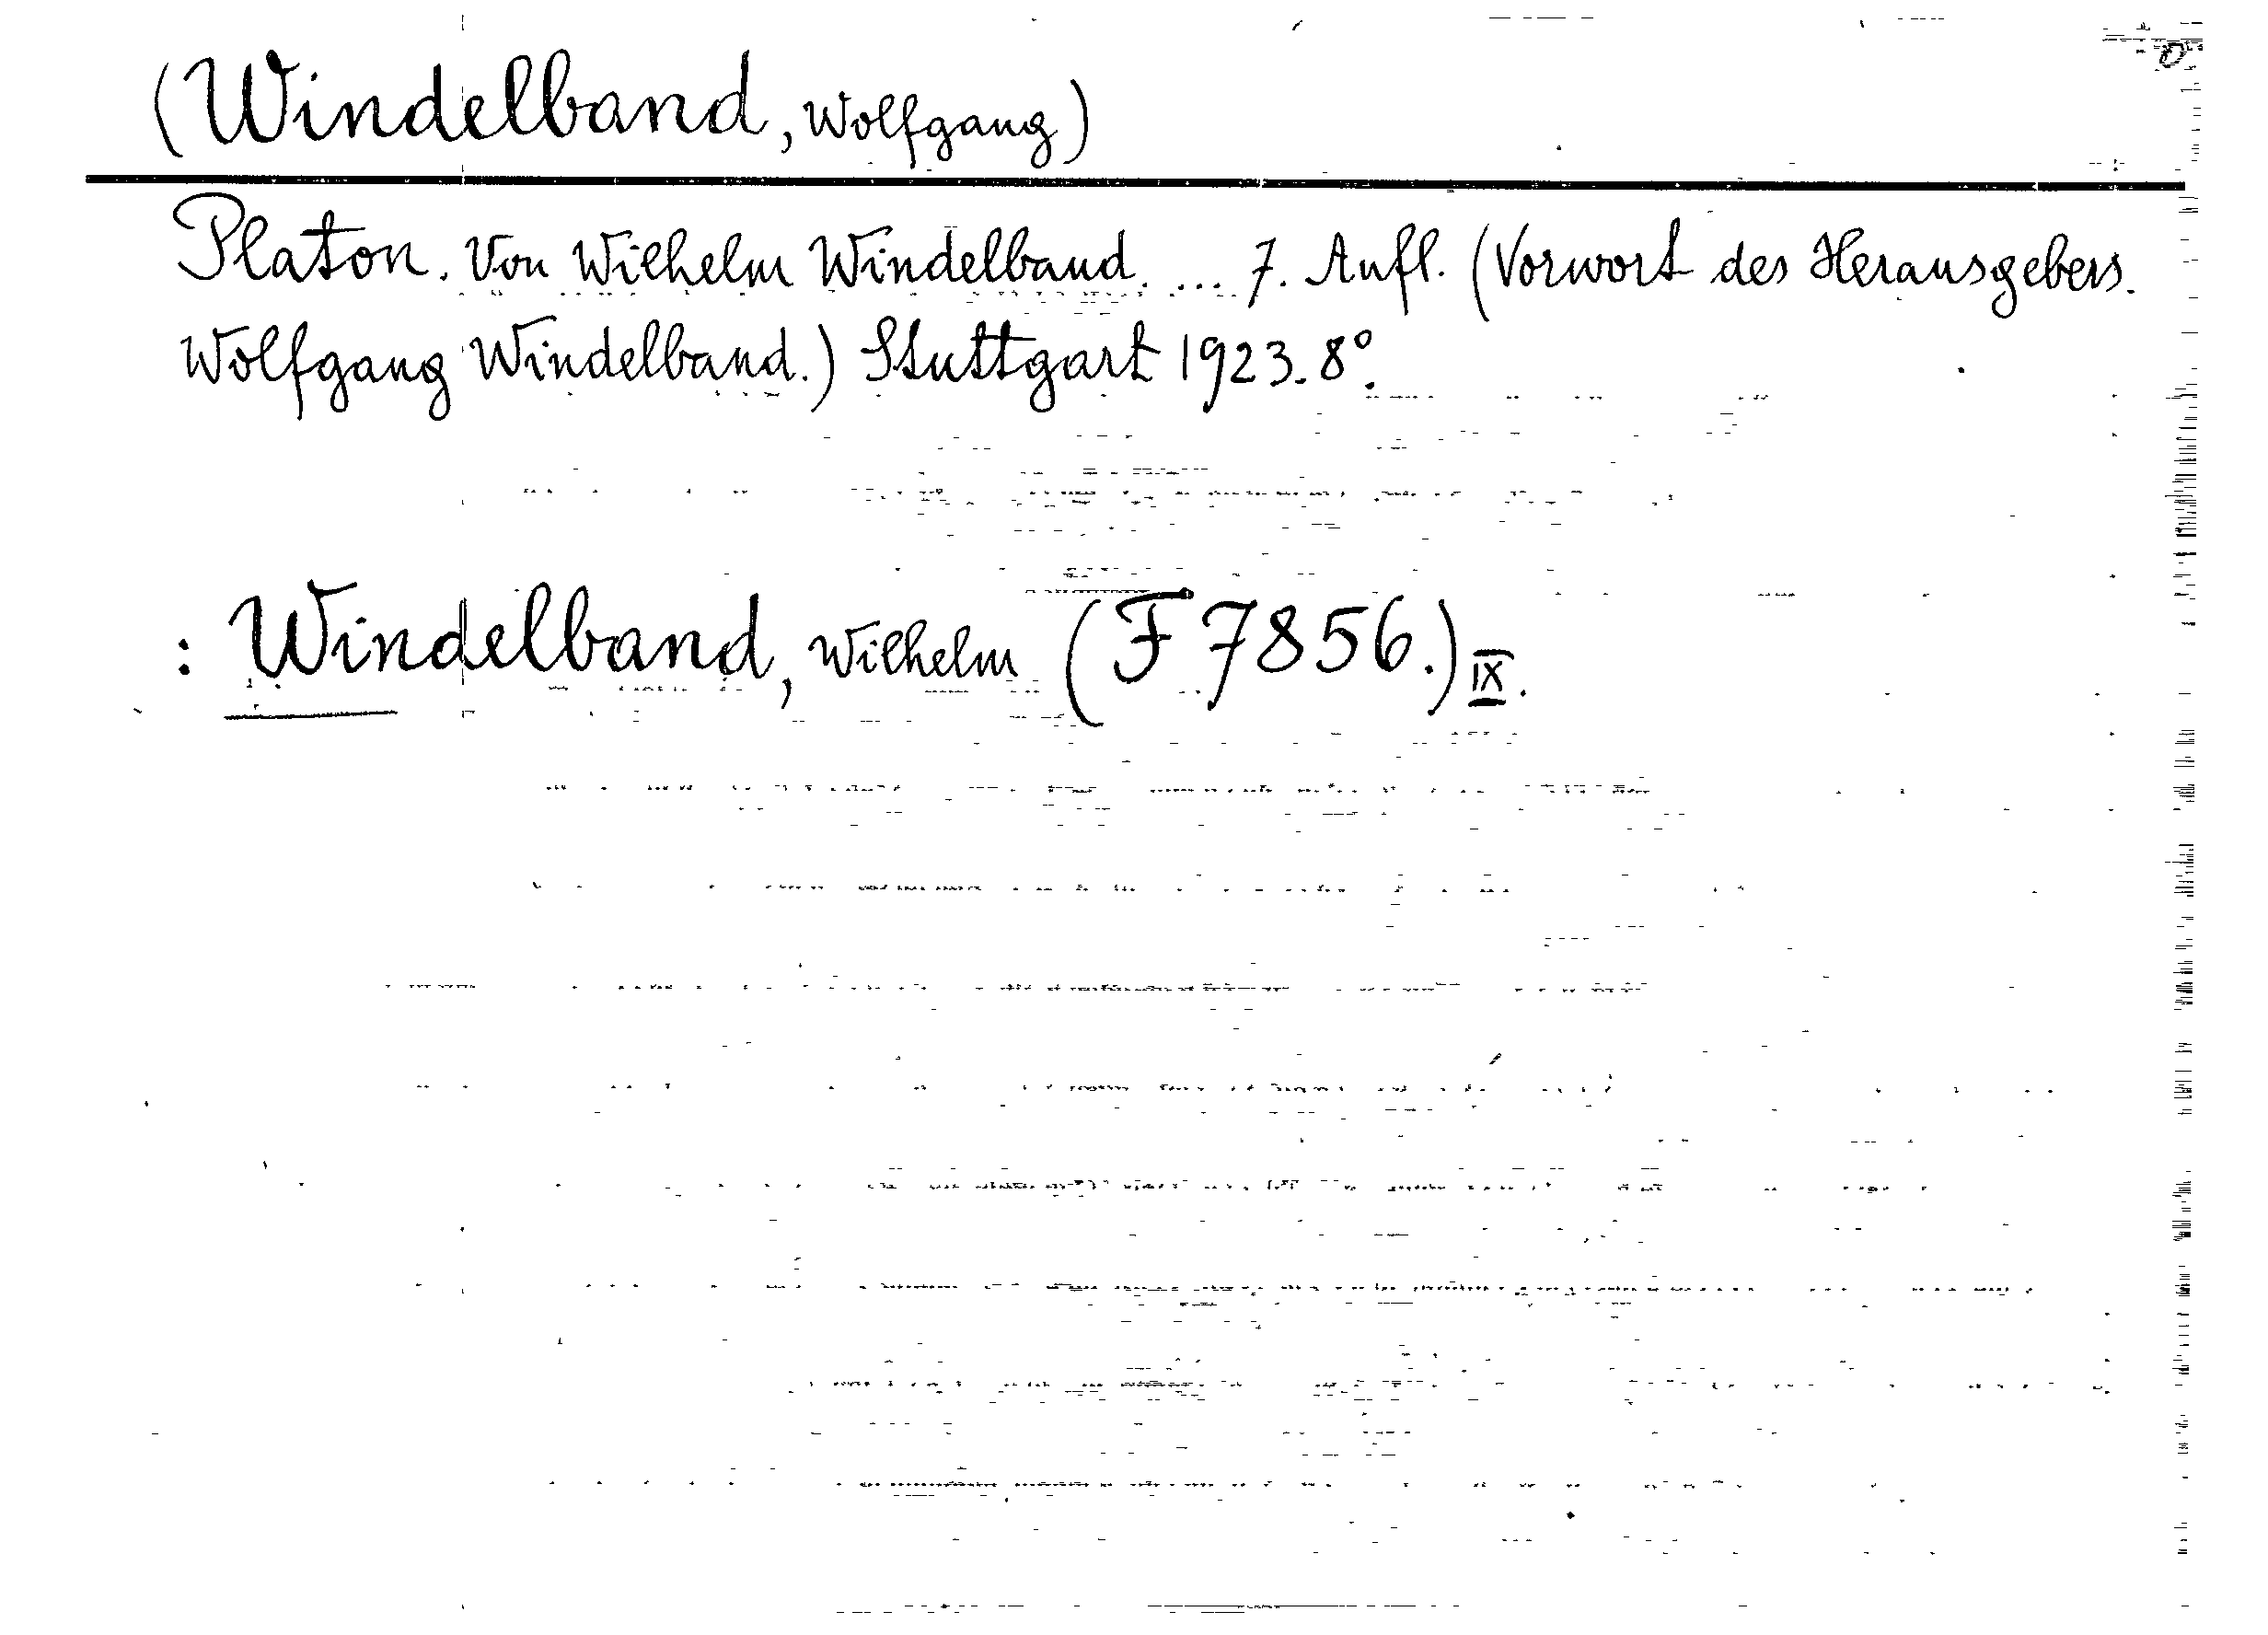 (Windelband, Wolfgang)
Platon. Von Wilhelm Windelband. ... 7. Aufl. (Vorwort des Herausgebers.
Wolfgang Windelband.) Stuttgart 1923. 8°.
: Windelband, Wilhelm (F 7856.) IX.